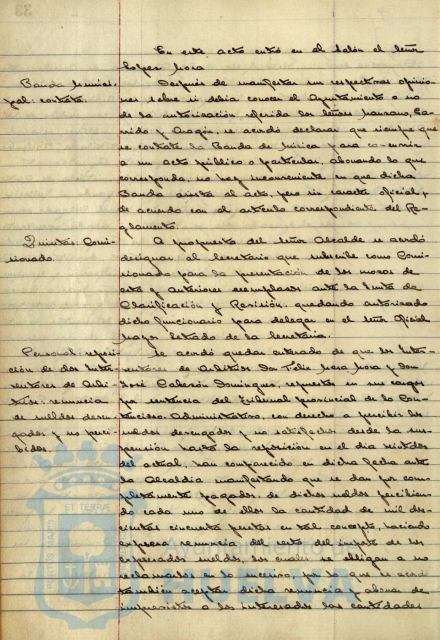 En este acto entró en el Salón el señor
López Mora
Banda Municipal: contrata.
Después de manifestar sus respectivas opinio-
nes sobre si debía conocer el Ayuntamiento o no
de la autorización referida los señores Manzano, Ga-
rrido y Aragón, se acordó declarar que siempre que
se contrate la Banda de Música para concurrir
a un acto público o particular, abonando lo que
corresponda, no hay inconveniente en que dicha
Banda asista al acto, pero sin carácter oficial y
de acuerdo con el artículo correspondiente del Re-
glamento.
Quintas: Comi-
sionado.
A propuesta del señor Alcalde se acordó
designar al Secretario que subscribe como Comi-
sionado para la presentación de los mozos de
este y anteriores reemplazos ante la Junta de
Clasificación y Revisión, quedando autorizado
dicho funcionario para delegar en el señor Oficial
Mayor Letrado de la Secretaría.
Personal: reposi-
ción de dos Inter-
ventores de Arbi-
trios: renuncia
de sueldos deven-
gados y no perci-
bidos.
Se acordó quedar enterado de que los Inter-
ventores de Arbitrios Don Félix Mora Mora y Don
José Calderón Domínguez, repuestos en sus cargos
por sentencia del Tribunal provincial de lo Con-
tencioso Administrativo, con derecho a percibir los
sueldos devengados y no satisfechos desde la sus-
pensión hasta la reposición en el día
del actual, han comparecido en dicha fecha ante
la Alcaldía manifestando que se dan por com-
pletamente pagados de dichos sueldos percibiendo
cada uno de ellos la cantidad de mil dos-
cientas cincuenta pesetas en tal concepto, haciendo
expresa renuncia del resto del importe de los
expresados sueldos, los cuales se obligan a no
reclamarlos en lo sucesivo, por lo que se acordó
también aceptar dicha renuncia y abonar de
imprevistos a los interesados las cantidades